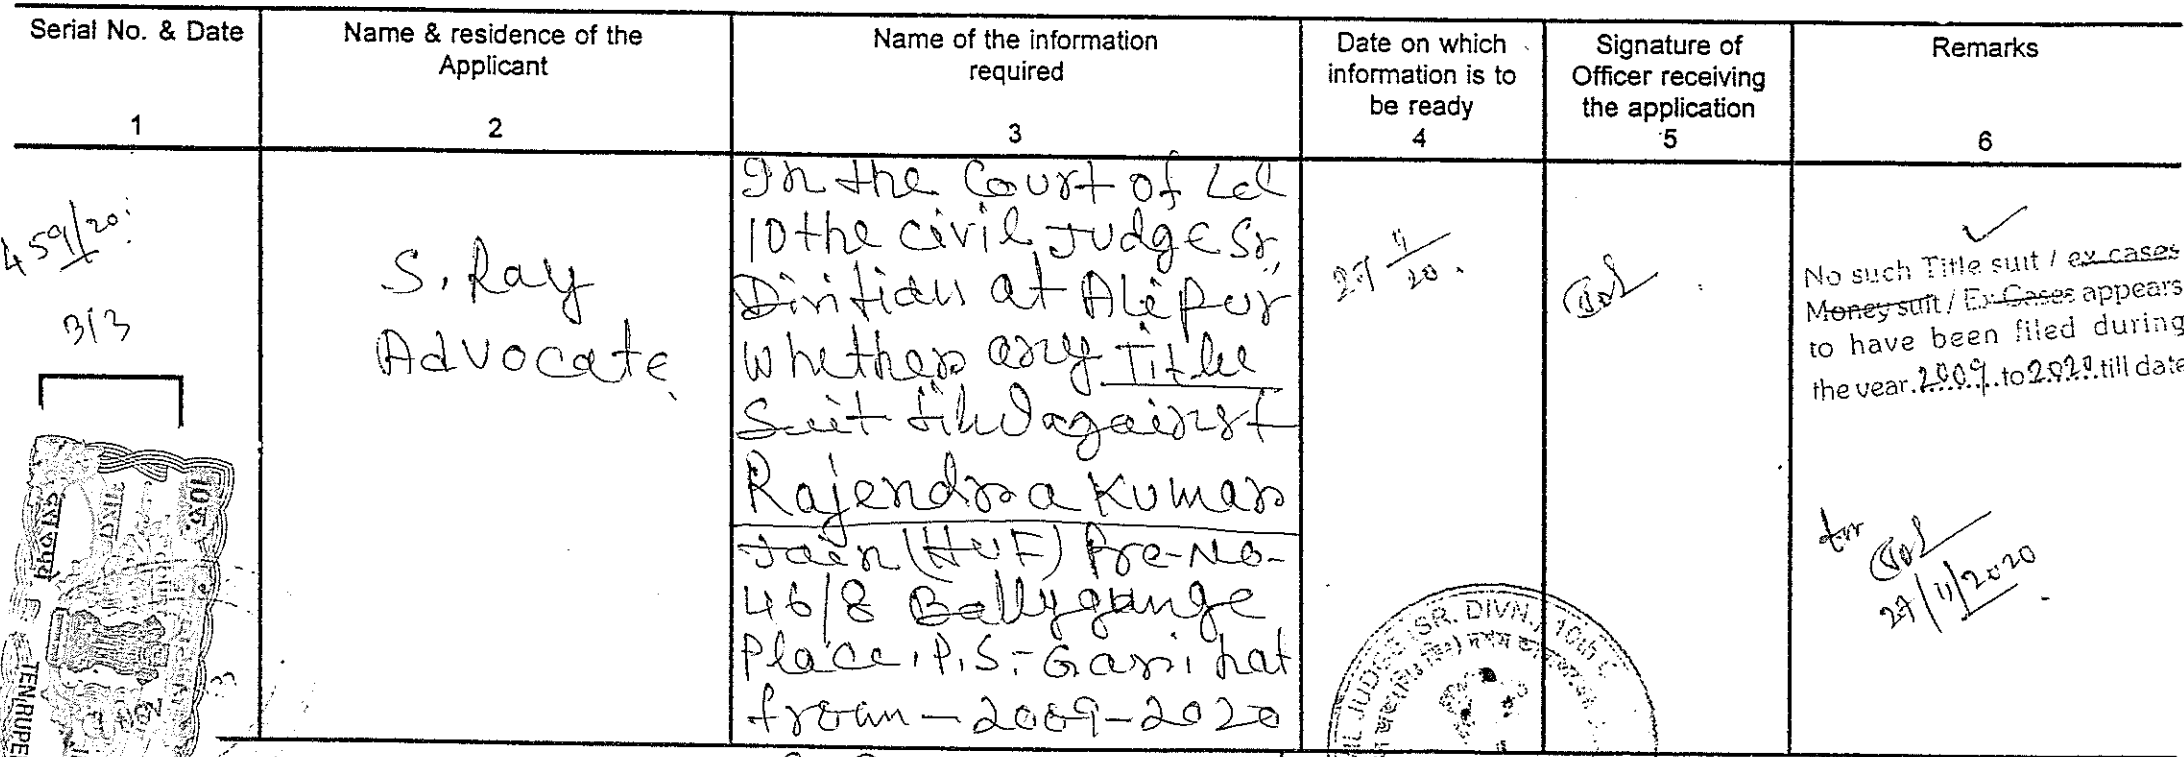 Serial No. & Date
1
Name & residence of the
Applicant
2
Name of the information
required
3
Date on which
information is to
be ready
4
Signature of
Officer receiving
the application
5
Remarks
6
459/20
3/3
S. Ray
Advocate
In the Court of Ld
10the civil Judge Sr,
at Alipur
Whether any Title
Suit against
Rajendra Kumar
Jain (HUF) Pre-No-
46/8 Ballygunge
Place, P.S:- Gariahat
from - 2009-2020
27 11/20.
No such Title suit / ex cases
Money suit / Ex-Cases appears
to have been filed during
the year 2009 to 2020 till date
for
27/11/2020
JUDGE (SR. DIVN.) 10th C
TEN RUPEE